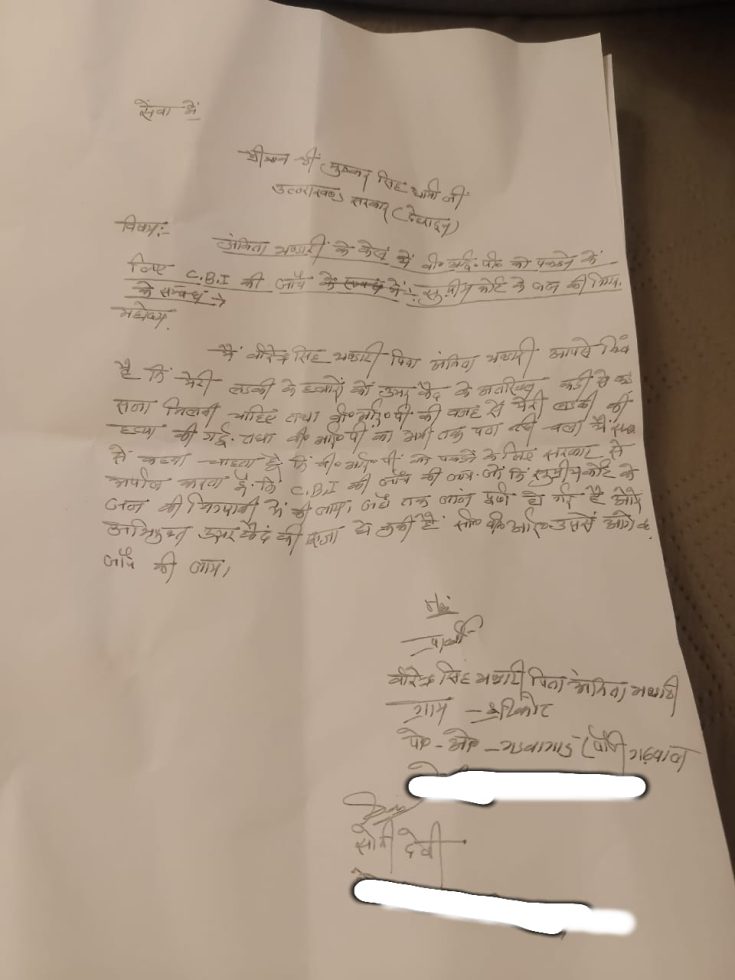 सेवा में
श्रीमान श्री पुष्कर सिंह धामी जी
उत्तराखण्ड सरकार (देहरादून)
विषय:-
अंकिता भण्डारी के केस में वी॰आई॰पी॰ को पकडने के
लिए C.B.I की जाँच के सम्बंध में:- सुप्रीम कोर्ट के जज की निग.
के सम्बंध →
महोदय,
मैं वीरेन्द्र सिंह भण्डारी पिता अंकिता भण्डारी आपसे
है कि मेरी लडकी के हत्यारों को उम्र कैद के अतिरिक्त कडी से कडी
सजा मिलनी चाहिए तथा वी॰आई॰पी की वजह से मेरी लडकी की
हत्या की गई. तथा वी॰आई॰पी का अभी तक पता नही चला मैं
से कहना चाहता हूँ कि वी॰आई॰पी को पकडने के लिए सरकार से
अपील करता हूँ कि C.B.I की जाँच की जाय. जो कि सुप्रीम कोर्ट के
जज की निगरानी में की जाय। जहाँ तक जाँच पूर्ण हो गई है और
अभियुक्त उम्र कैद की सजा हो चुकी है सी॰बी॰आई॰ उससे आगे की
जाँच की जाय।
प्रार्थी
वीरेन्द्र सिंह भण्डारी पिता अंकिता भण्डारी
ग्राम - श्रीकोट
पो॰ - ओ॰ - (पौडी गढ़वाल
सोनी देवी